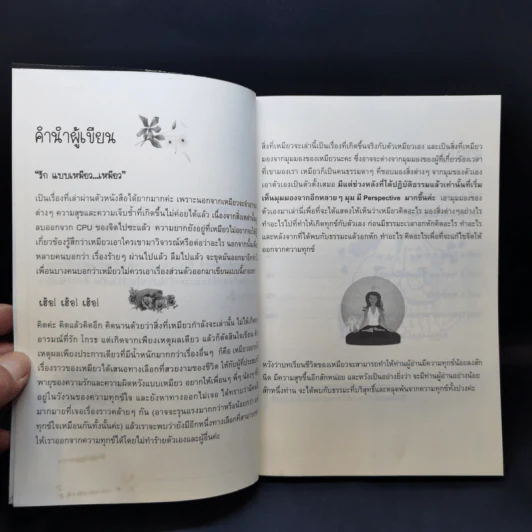 คำนำผู้เขียน
"รัก แบบเหมียว...เหมียว"
เป็นเรื่องที่เล่าผ่านตัวหนังสือได้ยากมากค่ะ เพราะนอกจากเหมียวจะ
ต่างๆ ความสุขและความเจ็บช้ำที่เกิดขึ้นไม่ค่อยได้แล้ว เนื่องจาก
ลบออกจาก CPU ของจิตไปซะแล้ว ความยากยังอยู่ที่เหมียวไม่อยาก
เกี่ยวข้องรู้สึกว่าเหมียวเอาใครเขามาวิจารณ์หรือต่อว่าอะไร นอกจากนั้น
หลายคนบอกว่า เรื่องร้ายๆ ผ่านไปแล้ว ลืมไปแล้ว จะขุดมันออกมา
เพื่อนบางคนบอกว่าเหมียวไม่ควรเอาเรื่องส่วนตัวออกมาเขียนแบบนี้
เฮ้อ! เฮ้อ! เฮ้อ!
คิดค่ะ คิดแล้วคิดอีก คิดนานด้วยว่าสิ่งที่เหมียวกำลังจะเล่านั้น ไม่ให้
อารมณ์ที่รัก โกรธ แต่เกิดจากเพียงเหตุผลเดียว แล้วก็ตัดสินใจเขียน
เหตุผลเพียงประการเดียวที่มีน้ำหนักมากกว่าเรื่องอื่นๆ ก็คือ เหมียว
เรื่องราวของเหมียวได้เสนอทางเลือกที่สวยงามของชีวิต ให้กับผู้ที่
พายุของความรักและความผิดหวังแบบเหมียว อยากให้เพื่อนๆ
อยู่ในวังวนของความทุกข์ใจ และยังหาทางออกไม่เจอ ได้ทราบว่า
มากมายที่เจอเรื่องราวคล้ายๆ กัน (อาจจะรุนแรงมากกว่าหรือน้อยกว่า
ทุกข์ใจเหมือนกันทั้งนั้นค่ะ) แล้วเราจะพบว่ายังมีอีกหนึ่งทางเลือกที่
ให้เราออกจากความทุกข์ได้โดยไม่ทำร้ายตัวเองและผู้อื่นค่ะ
สิ่งที่เหมียวจะเล่านี้เป็นเรื่องที่เกิดขึ้นจริงกับตัวเหมียวเอง และเป็นสิ่งที่เหมียว
มองจากมุมมองของเหมียวนะคะ ซึ่งอาจจะต่างจากมุมมองของผู้ที่เกี่ยวข้อง
ที่เขามองเรา เหมียวก็เป็นคนธรรมดาๆ ที่ชอบมองสิ่งต่างๆ จากมุมของตัวเอง
เอาตัวเองเป็นตัวตั้งเสมอ มีแต่ช่วงหลังที่ได้ปฏิบัติธรรมแล้วเท่านั้นที่เริ่ม
เห็นมุมมองจากอีกหลายๆ มุม มี Perspective มากขึ้นค่ะ เอามุมมองของ
ตัวเองมาเล่านี่เพื่อที่จะได้แสดงให้เห็นว่าเหมียวคิดอะไร มองสิ่งต่างๆอย่างไร
ทำอะไรไปที่ทำให้เกิดทุกข์กับตัวเอง ก่อนมีธรรมะเวลาอกหักคิดอะไร ทำอะไร
และหลังจากที่ได้พบกับธรรมะแล้วอกหัก ทำอะไร คิดอะไรเพื่อที่จะแก้ไขจิตให้
ออกจากความทุกข์
หวังว่าบทเรียนชีวิตของเหมียวจะสามารถทำให้ท่านผู้อ่านมีความทุกข์น้อยลงสัก
นิด มีความสุขขึ้นอีกสักหน่อย และหวังเป็นอย่างยิ่งว่า จะมีท่านผู้อ่านอย่างน้อย
สักหนึ่งท่าน จะได้พบกับธรรมะที่บริสุทธิ์และหลุดพ้นจากความทุกข์ทั้งปวงค่ะ